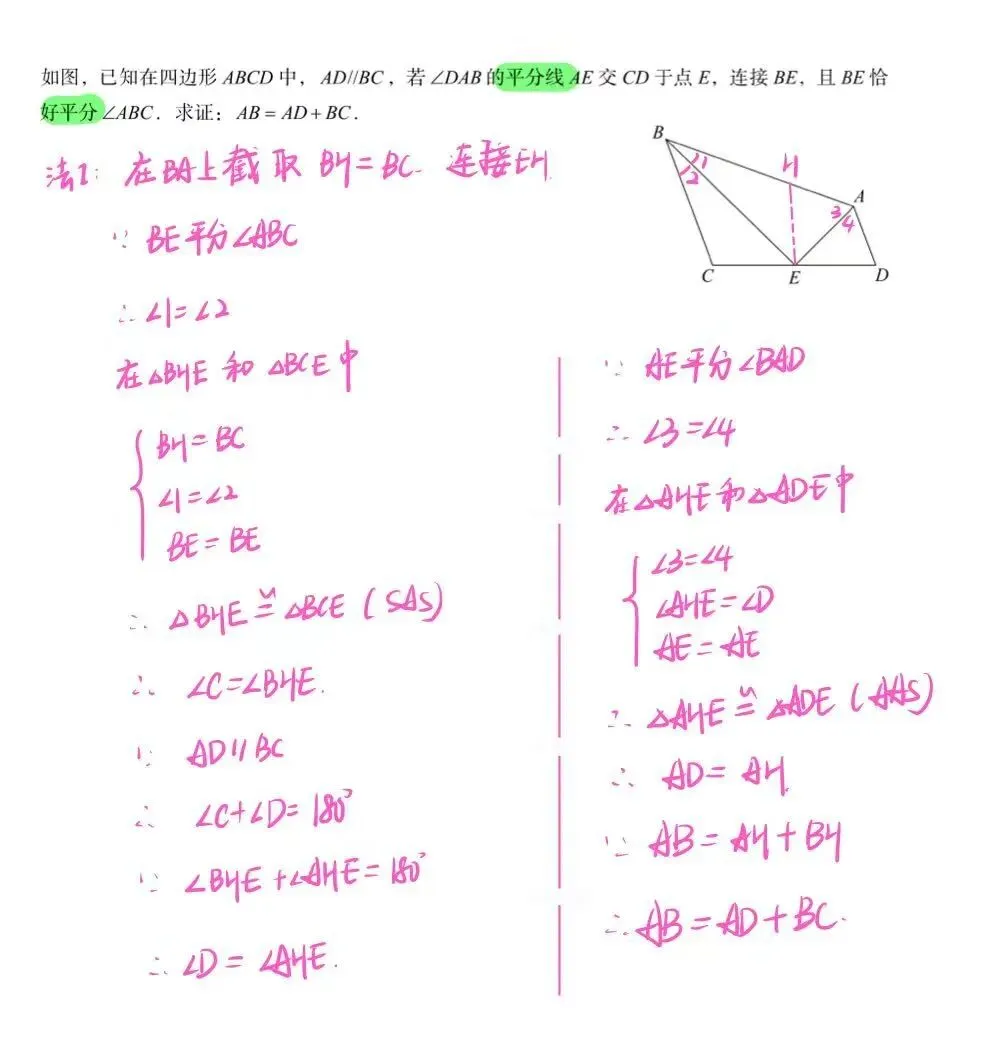 如图，已知在四边形 ABCD 中， AD//BC ，若∠DAB 的平分线 AE 交 CD 于点 E，连接 BE，且 BE 恰
好平分∠ABC．求证：AB = AD + BC．
法1: 在BA上截取 BH=BC. 连接EH
∵ BE平分∠ABC
∴ ∠1=∠2
在△BHE 和 △BCE中
BH=BC
∠1=∠2
BE=BE
∴ △BHE≌△BCE (SAS)
∴ ∠C=∠BHE.
∵ AD∥BC
∴ ∠C+∠D=180°
∵ ∠BHE+∠AHE=180°
∴ ∠D=∠AHE.
∵ AE平分∠BAD
∴ ∠3=∠4
在△AHE和△ADE中
∠3=∠4
∠AHE=∠D
AE=AE
∴ △AHE≌△ADE (AAS)
∴ AD=AH.
∵ AB=AH+BH
∴ AB=AD+BC.
B
1
2
H
A
3
4
C
E
D